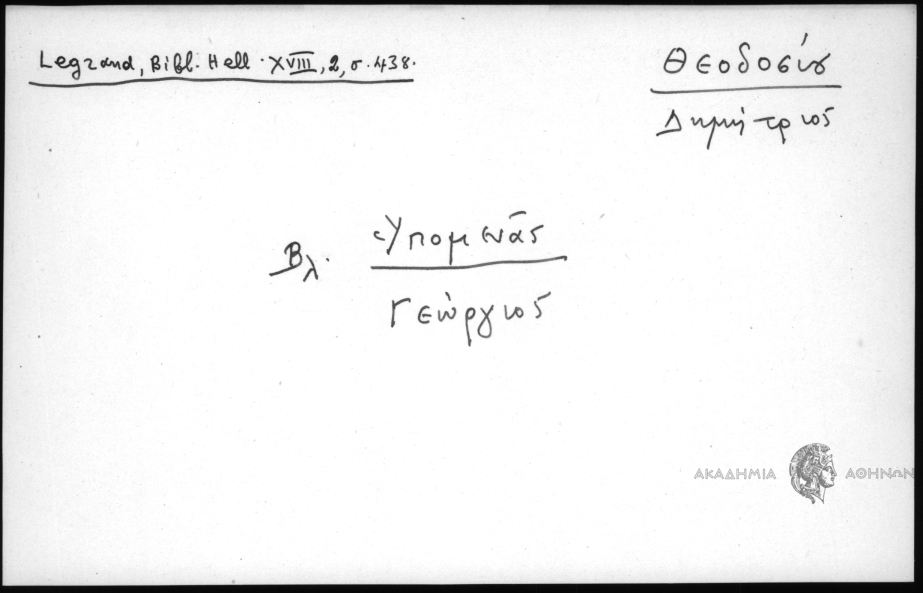 Legrand, Bibl. Hell. XVIII, 2, σ. 438.
Θεοδοσίου
Δημήτριος
Βλ. Ὑπομενᾶς
Γεώργιος
ΑΚΑΔΗΜΙΑ ΑΘΗΝΩΝ